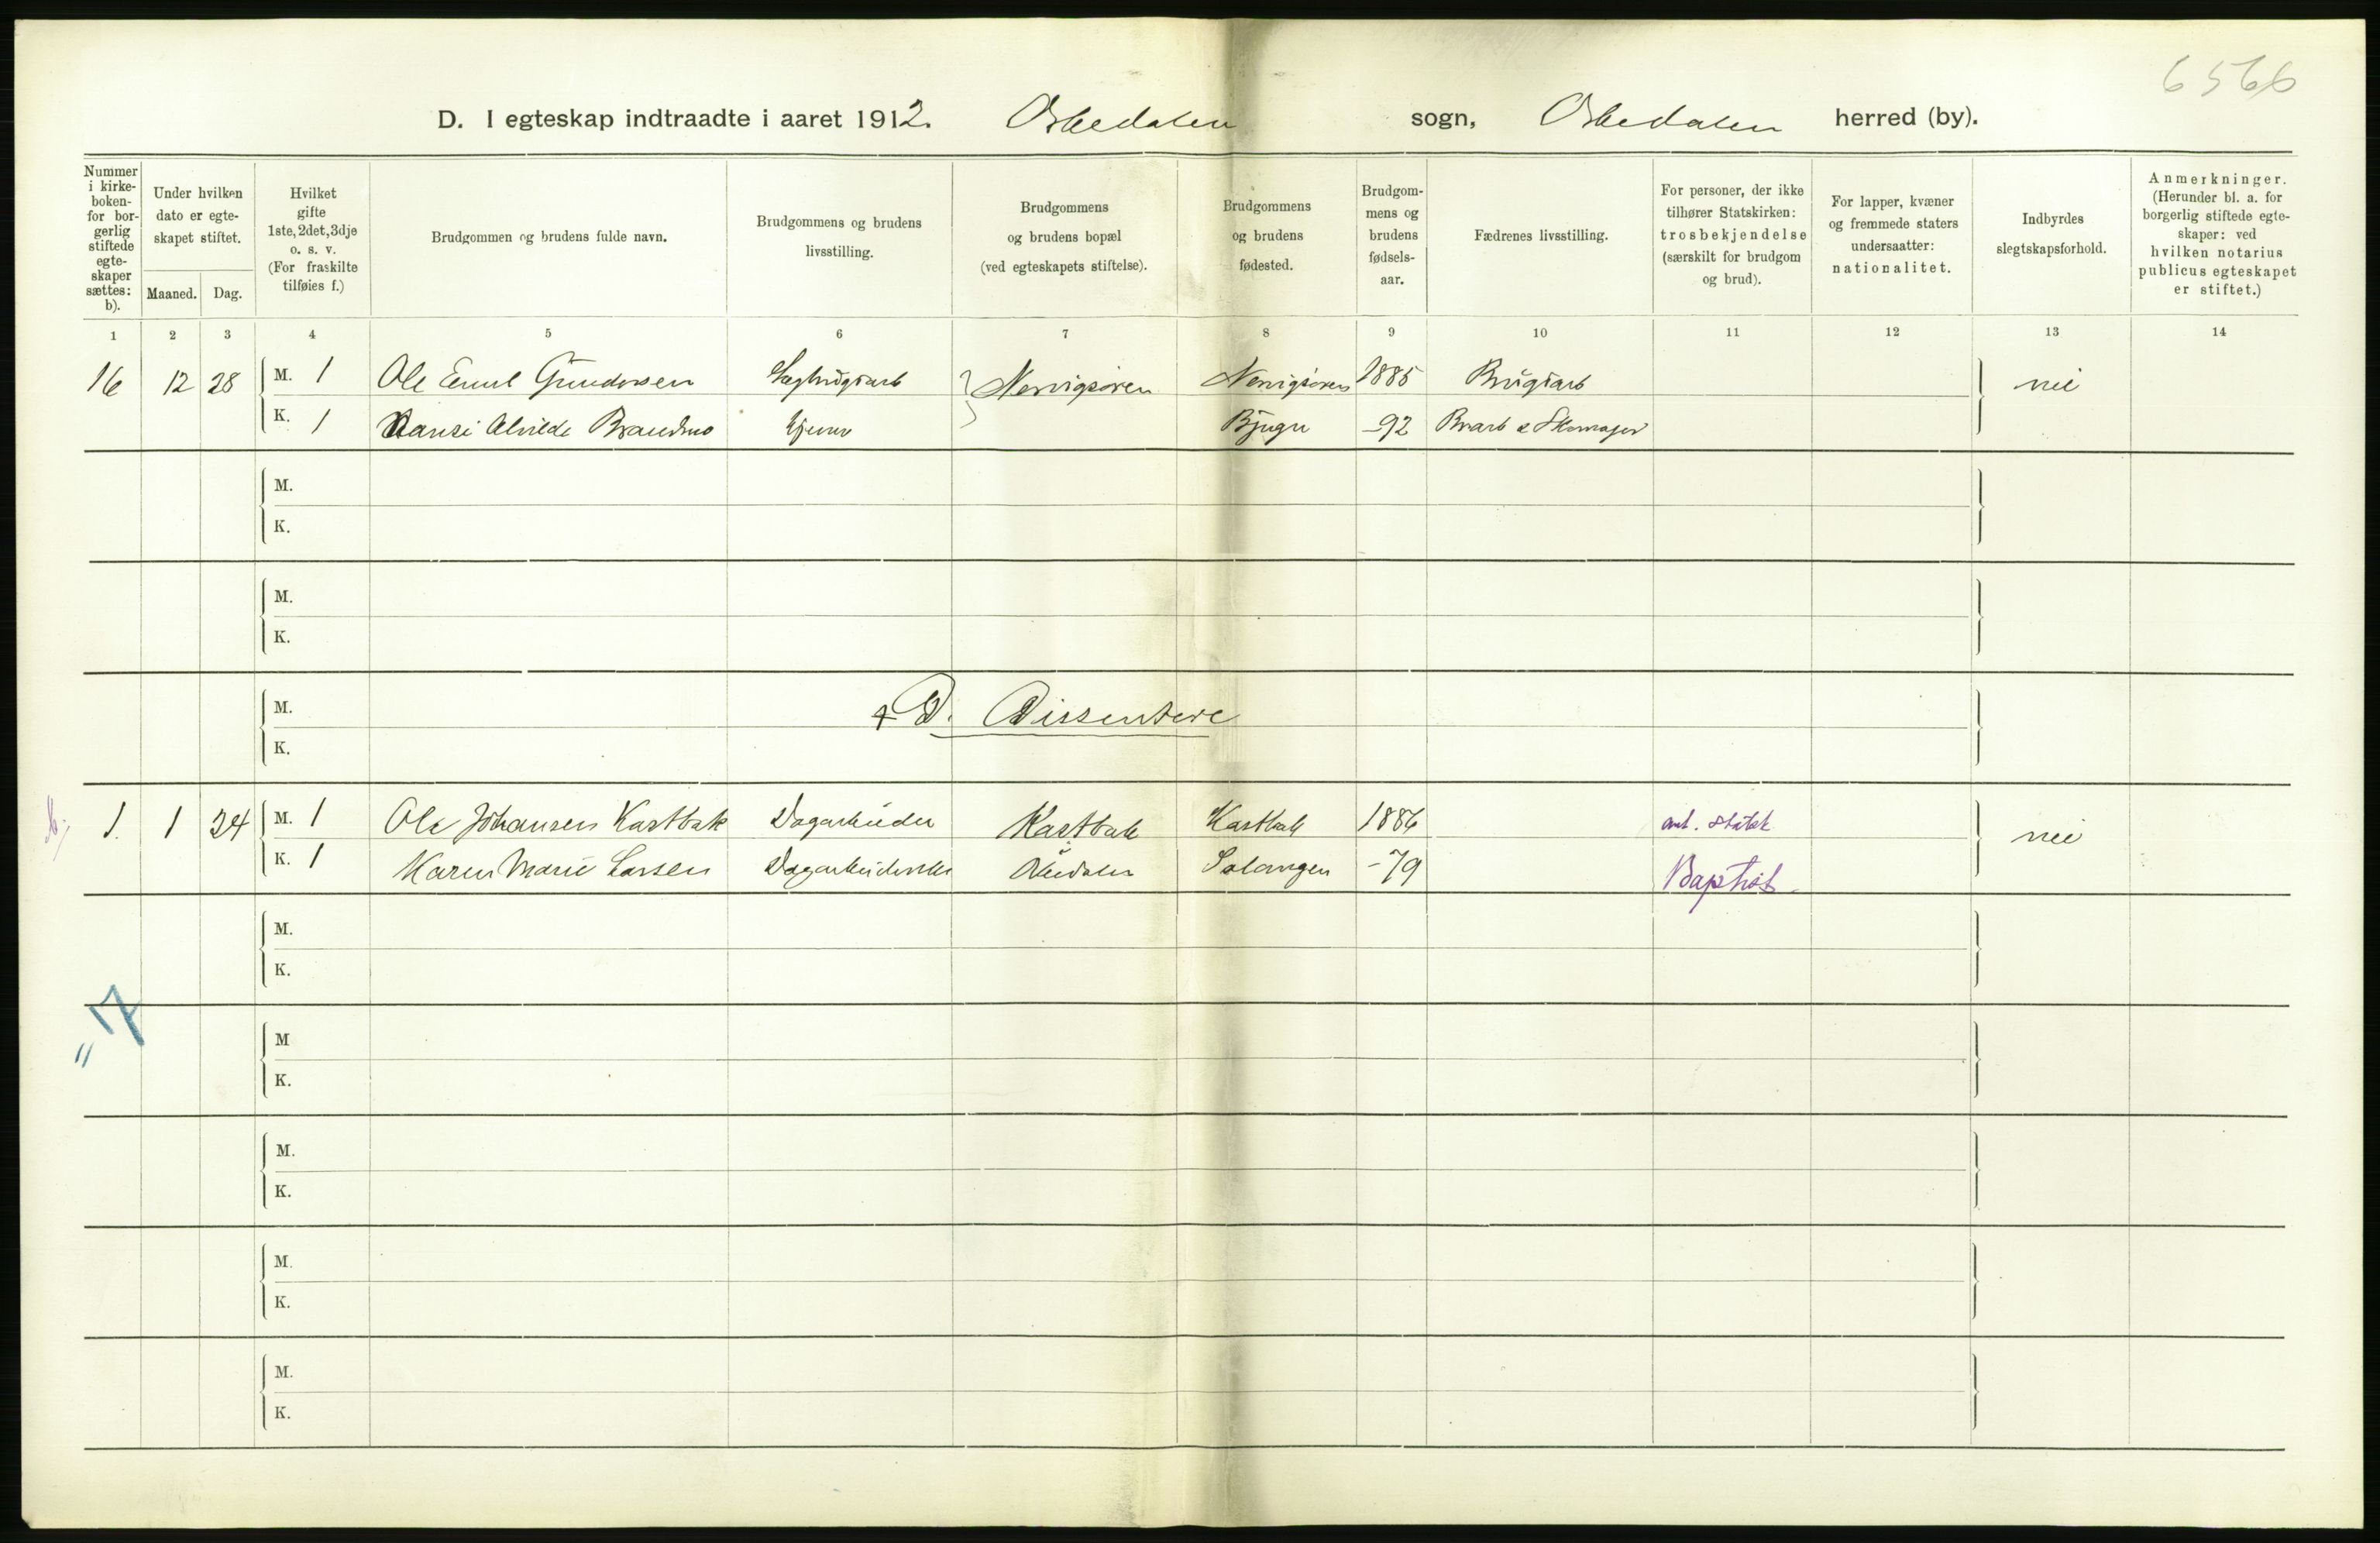 6566
D. I egteskap indtraadte i aaret 1912. sogn, herred (by).
Nummer
i kirke-
boken-
for bor-
gerlig
stiftede
egte-
skaper
sættes:
b).
Under hvilken
dato er egte-
skapet stiftet.
Maaned. Dag.
Hvilket
gifte
1ste, 2det, 3dje
o. s. v.
(For fraskilte
tilføies f.)
Brudgommen og brudens fulde navn.
Brudgommens og brudens
livsstilling.
Brudgommens
og brudens bopæl
(ved egteskapets stiftelse).
Brudgommens
og brudens
fødested.
Brudgom-
mens og
brudens
fødsels-
aar.
Fædrenes livsstilling.
For personer, der ikke
tilhører Statskirken:
trosbekjendelse
(særskilt for brudgom
og brud).
For lapper, kvæner
og fremmede staters
undersaatter:
nationalitet.
Indbyrdes
slegtskapsforhold.
Anmerkninger.
(Herunder bl. a. for
borgerlig stiftede egte-
skaper: ved
hvilken notarius
publicus egteskapet
er stiftet.)
1 2 3 4 5 6 7 8 9 10 11 12 13 14
16 12 28 M. 1 Ole Emil Gundersen 1885 nei
K. 1 Alvilde Brandmo Bjugn -92
M.
K.
M.
K.
M. D. Dissentere
K.
b; 1. 1 24 M. 1 Ole Johansen Kastbak Dagarbeider Kastbak Kastbak 1886 nei
K. 1 Karen Marie Larsen Salangen -79 Baptist
M.
K.
" 7
M
K.
M.
K.
M.
K.
M.
K.